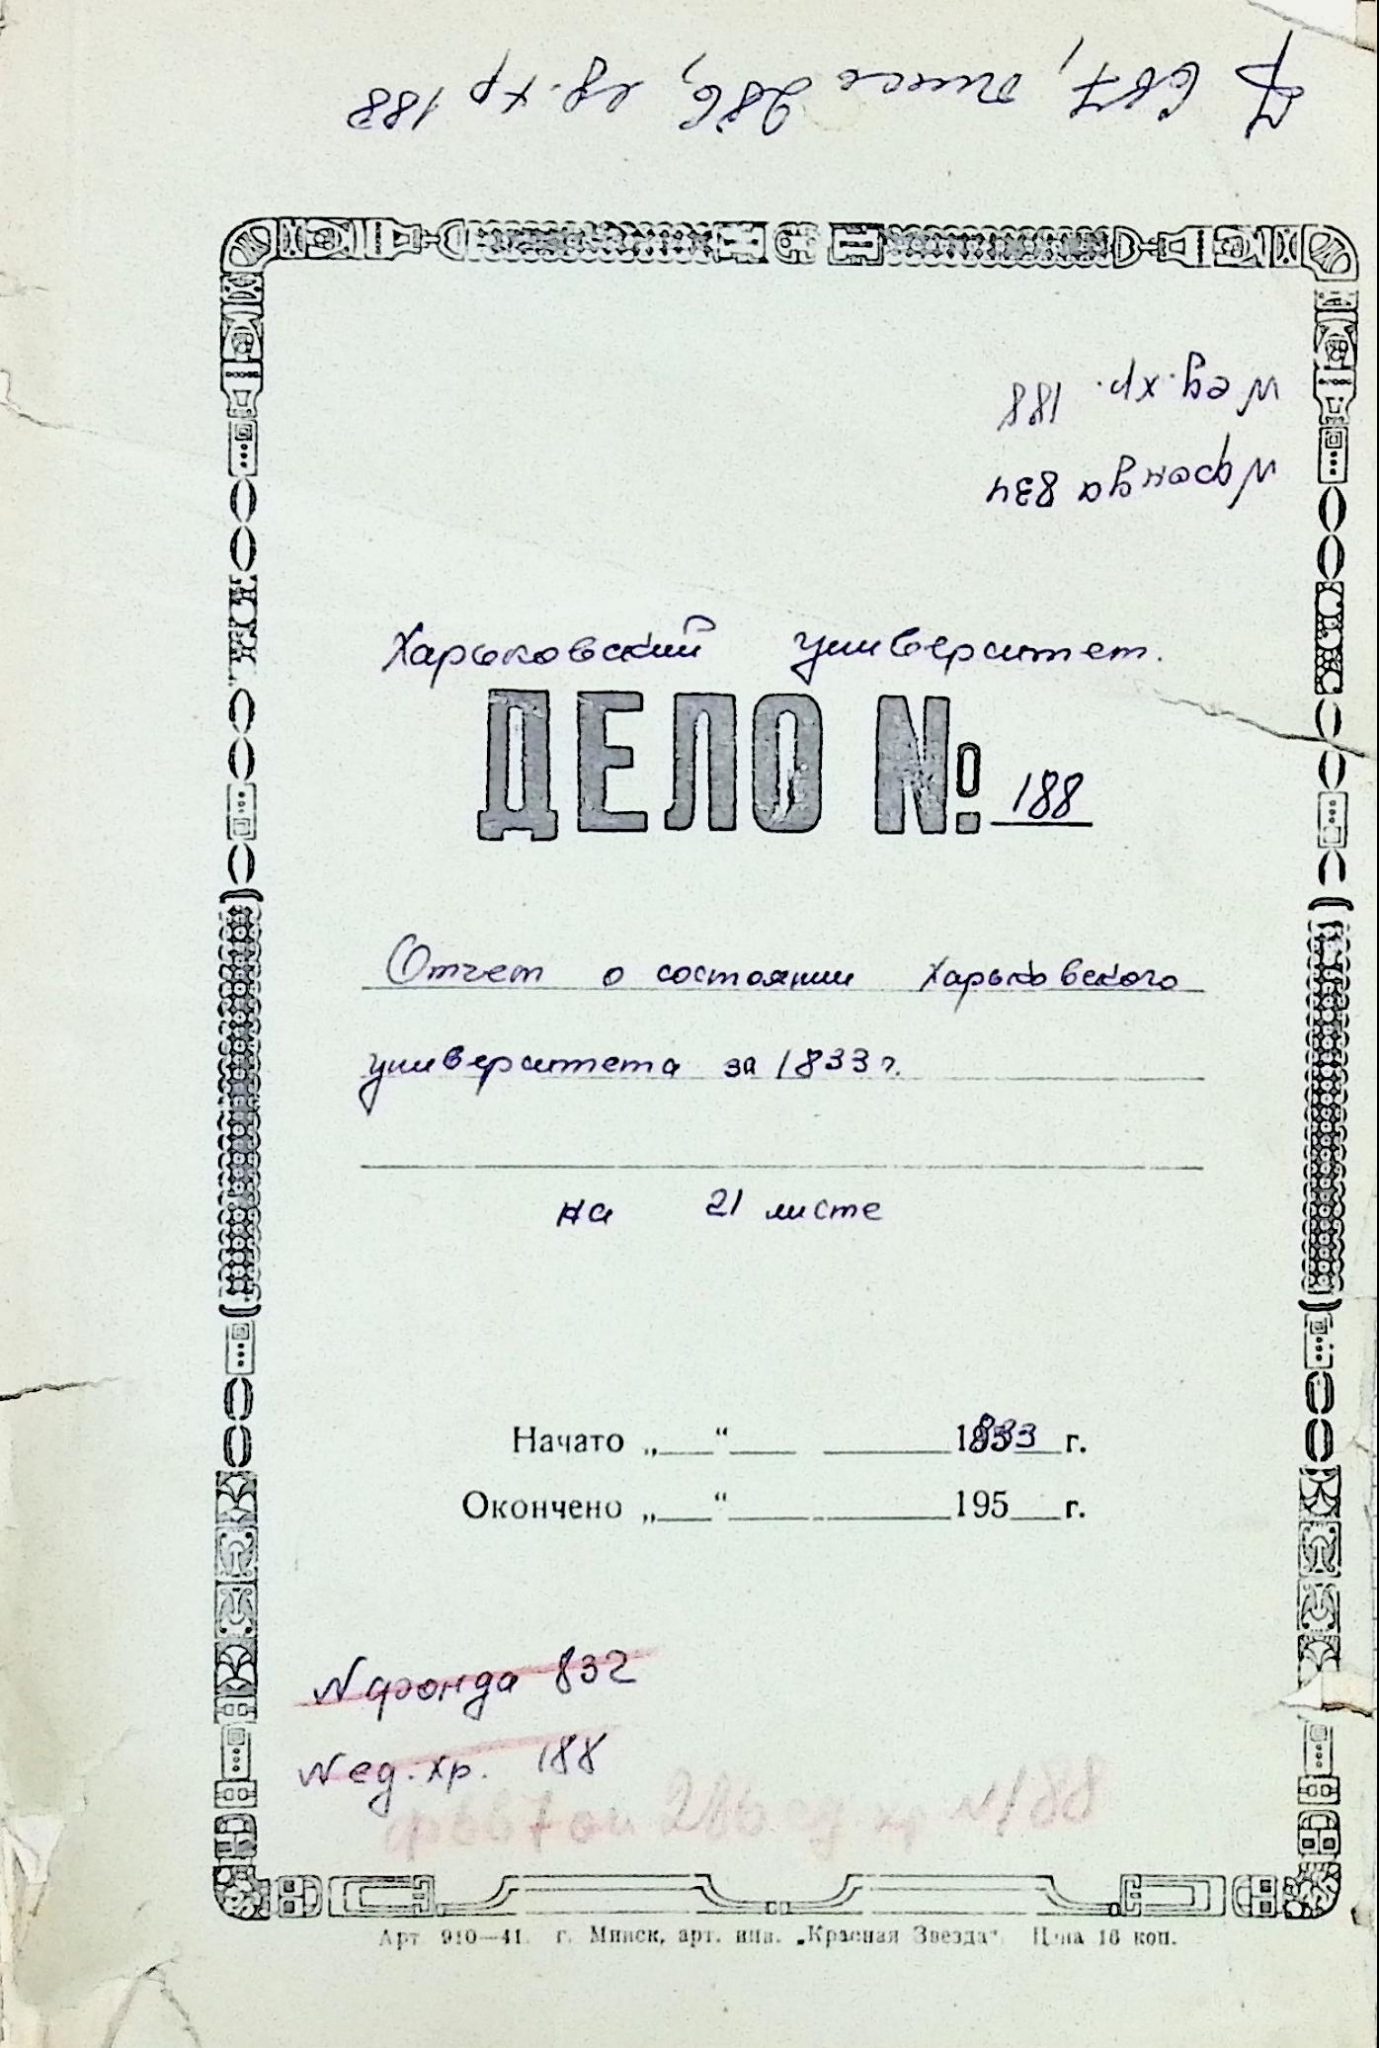 Ф 667, опись 286, ед. хр 188
№ ед. хр. 188
№ фонда 834
Харьковский университет.
ДЕЛО № 188
Отчет о состоянии Харьковского
университета за 1833 г.
на 21 листе
Начато „ “ 1833 г.
Окончено „ “ 195 г.
№ фонда 832
№ ед. хр. 188
ф 667 оп 286 ед хр №188
Арт 910—41. г. Минск, арт. инв. „Красная Звезда“. Цена 16 коп.